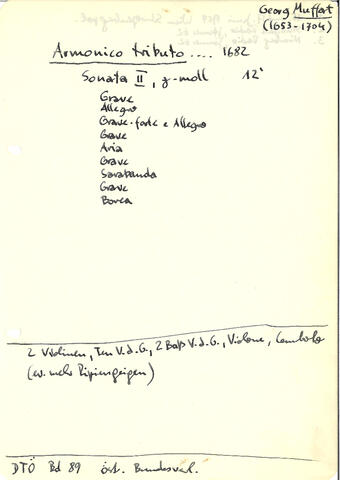 Georg Muffat
(1653-1704)
Armonico tributo .... 1682
Sonata II, g-moll 12'
Grave
Allegro
Grave-forte e Allegro
Grave
Aria
Grave
Sarabanda
Grave
Borea
2 Violinen, Ten V.d.G., 2 Baß V.d.G., Violone, Cembalo
(ev. mehr Ripiengeigen)
DTÖ Bd 89 öst. Bundesverl.